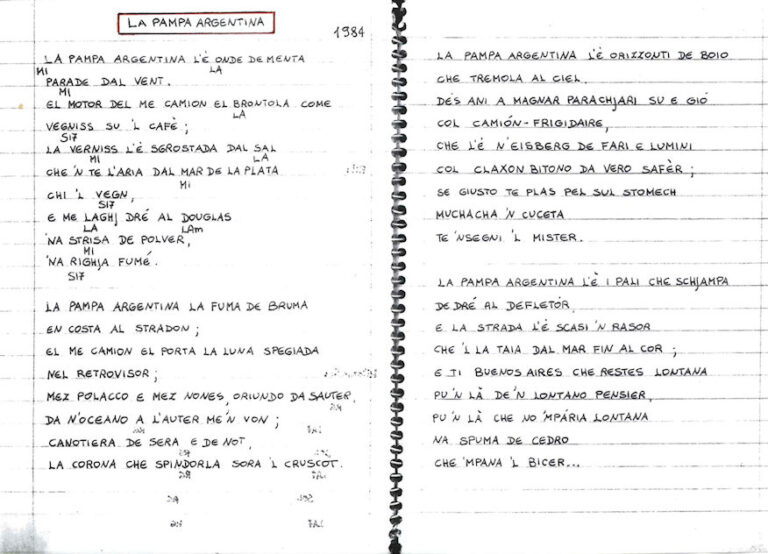 LA PAMPA ARGENTINA
1984
LA PAMPA ARGENTINA L'È ONDE DE MENTA
MI LA
PARADE DAL VENT.
MI
EL MOTOR DEL ME CAMION EL BRONTOLA COME
LA
VEGNISS SU 'L CAFÈ;
SI7
LA VERNISS L'È SGROSTADA DAL SAL
MI LA
CHE 'N TE L'ARIA DAL MAR DE LA PLATA
MI
CHI 'L VEGN,
SI7
E ME LAGHJ DRÉ AL DOUGLAS
LA LAm
'NA STRISA DE POLVER,
MI
'NA RIGHJA FUMÉ.
SI7
LA PAMPA ARGENTINA LA FUMA DE BRUMA
EN COSTA AL STRADON;
EL ME CAMION EL PORTA LA LUNA SPEGIADA
NEL RETROVISOR;
MEZ POLACCO E MEZ NONES, ORIUNDO DA SAUTER,
DA N'OCEANO A L'AUTER ME'N VON;
CANOTIERA DE SERA E DE NOT,
LA CORONA CHE SPINDORLA SORA 'L CRUSCOT.
LA PAMPA ARGENTINA L'È ORIZZONTI DE BOIO
CHE TREMOLA AL CIEL.
DÉS ANI A MAGNAR PARACHJARI SU E GIÓ
COL CAMIÓN-FRIGIDAIRE,
CHE L'È N'EISBERG DE FARI E LUMINI
COL CLAXON BITONO DA VERO SAFÈR;
SE GIUSTO TE PLAS PEL SUL STOMECH
MUCHACHA 'N CUCETA
TE 'NSEGNI 'L MISTER.
LA PAMPA ARGENTINA L'È I PALI CHE SCHJAMPA
DE DRÉ AL DEFLETÓR,
E LA STRADA L'È SCASI 'N RASOR
CHE 'L LA TAIA DAL MAR FIN AL COR;
E TI BUENOS AIRES CHE RESTES LONTANA
PU 'N LÀ DE 'N LONTANO PENSIER,
PU 'N LÀ CHE NO 'MPÁRIA LONTANA
NA SPUMA DE CEDRO
CHE 'MPANA 'L BICER...